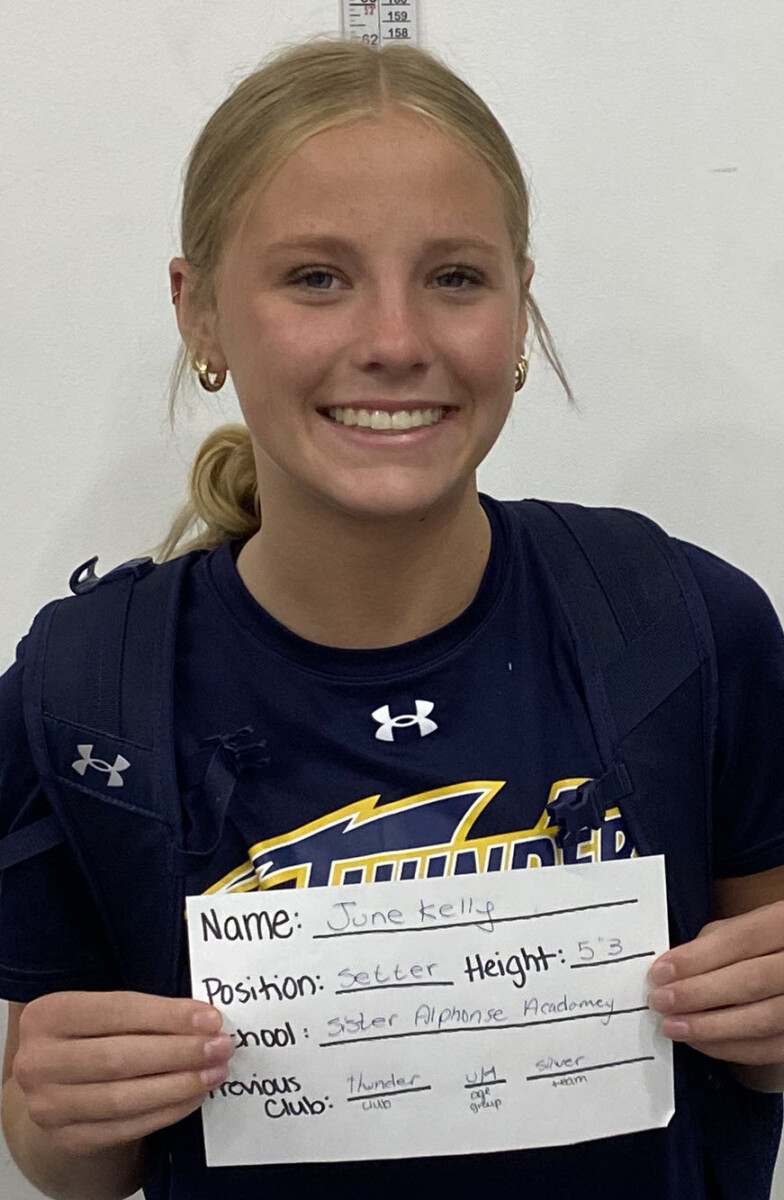 159
158
62
THUNDER
Name: June Kelly
Position: Setter Height: 5'3
School: Sister Alphonse Acadamey
Previous
Club: thunder silver
club age team
group